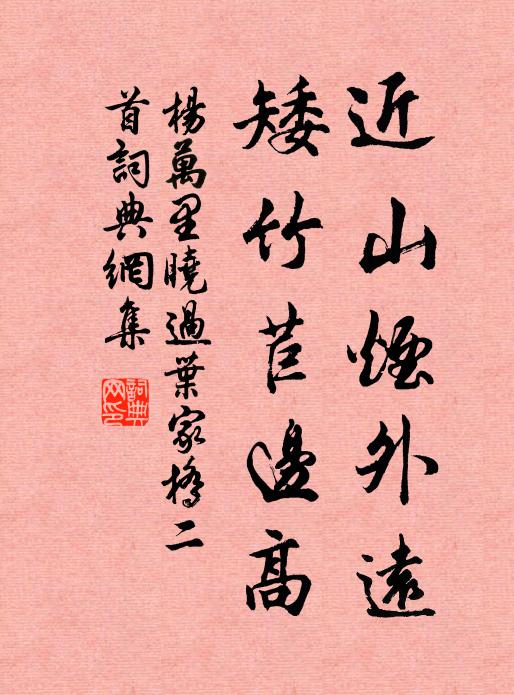 近山煙外遠
矮竹苣邊高
楊萬里曉過葉家橋二
首詞典網集
詞典
网印